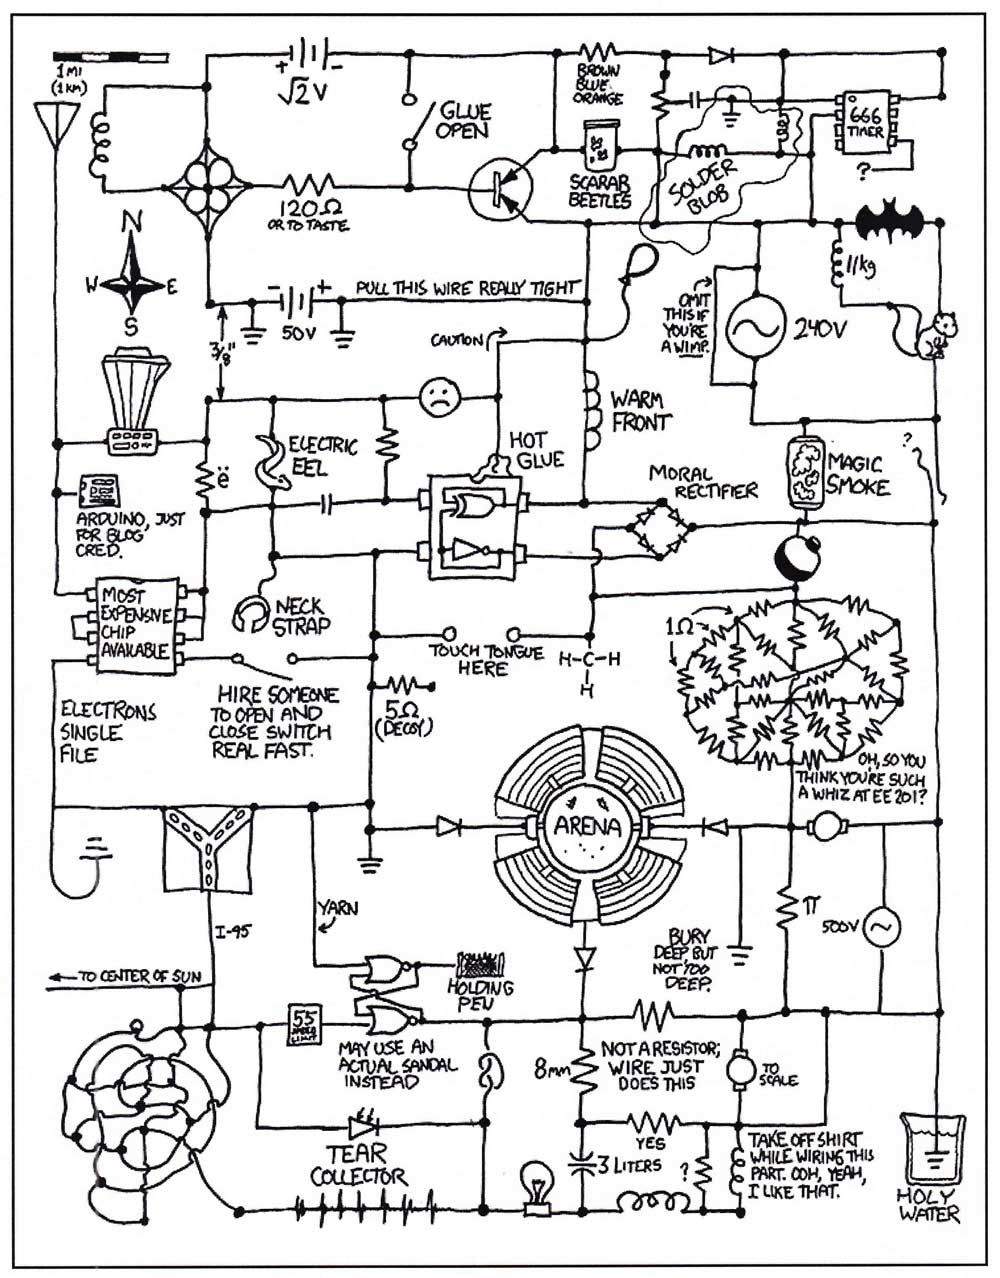 1 MI
(1 KM)
+
-
√2 V
GLUE
OPEN
BROWN
BLUE
ORANGE
666
TIMER
?
SCARAB
BEETLES
SOLDER
BLOB
120Ω
OR TO TASTE
N
W
E
S
- +
50V
PULL THIS WIRE REALLY TIGHT
3/8"
CAUTION
OMIT
THIS IF
YOU'RE
A WIMP.
240V
11kg
WARM
FRONT
ELECTRIC
EEL
ë
HOT
GLUE
MORAL
RECTIFIER
MAGIC
SMOKE
?
ARDUINO, JUST
FOR BLOG
CRED.
MOST
EXPENSIVE
CHIP
AVAILABLE
NECK
STRAP
TOUCH TONGUE
HERE
H-C-H
H
1Ω
ELECTRONS
SINGLE
FILE
HIRE SOMEONE
TO OPEN AND
CLOSE SWITCH
REAL FAST.
5Ω
(DECOY)
OH, SO YOU
THINK YOU'RE SUCH
A WHIZ AT EE 201?
ARENA
YARN
I-95
BURY
DEEP, BUT
NOT TOO
DEEP.
π
500V
TO CENTER OF SUN
HOLDING
PEN
55
SPEED
LIMIT
MAY USE AN
ACTUAL SANDAL
INSTEAD
8mm
NOT A RESISTOR;
WIRE JUST
DOES THIS
TO
SCALE
TEAR
COLLECTOR
YES
3 LITERS
?
TAKE OFF SHIRT
WHILE WIRING THIS
PART. OOH, YEAH,
I LIKE THAT.
HOLY
WATER